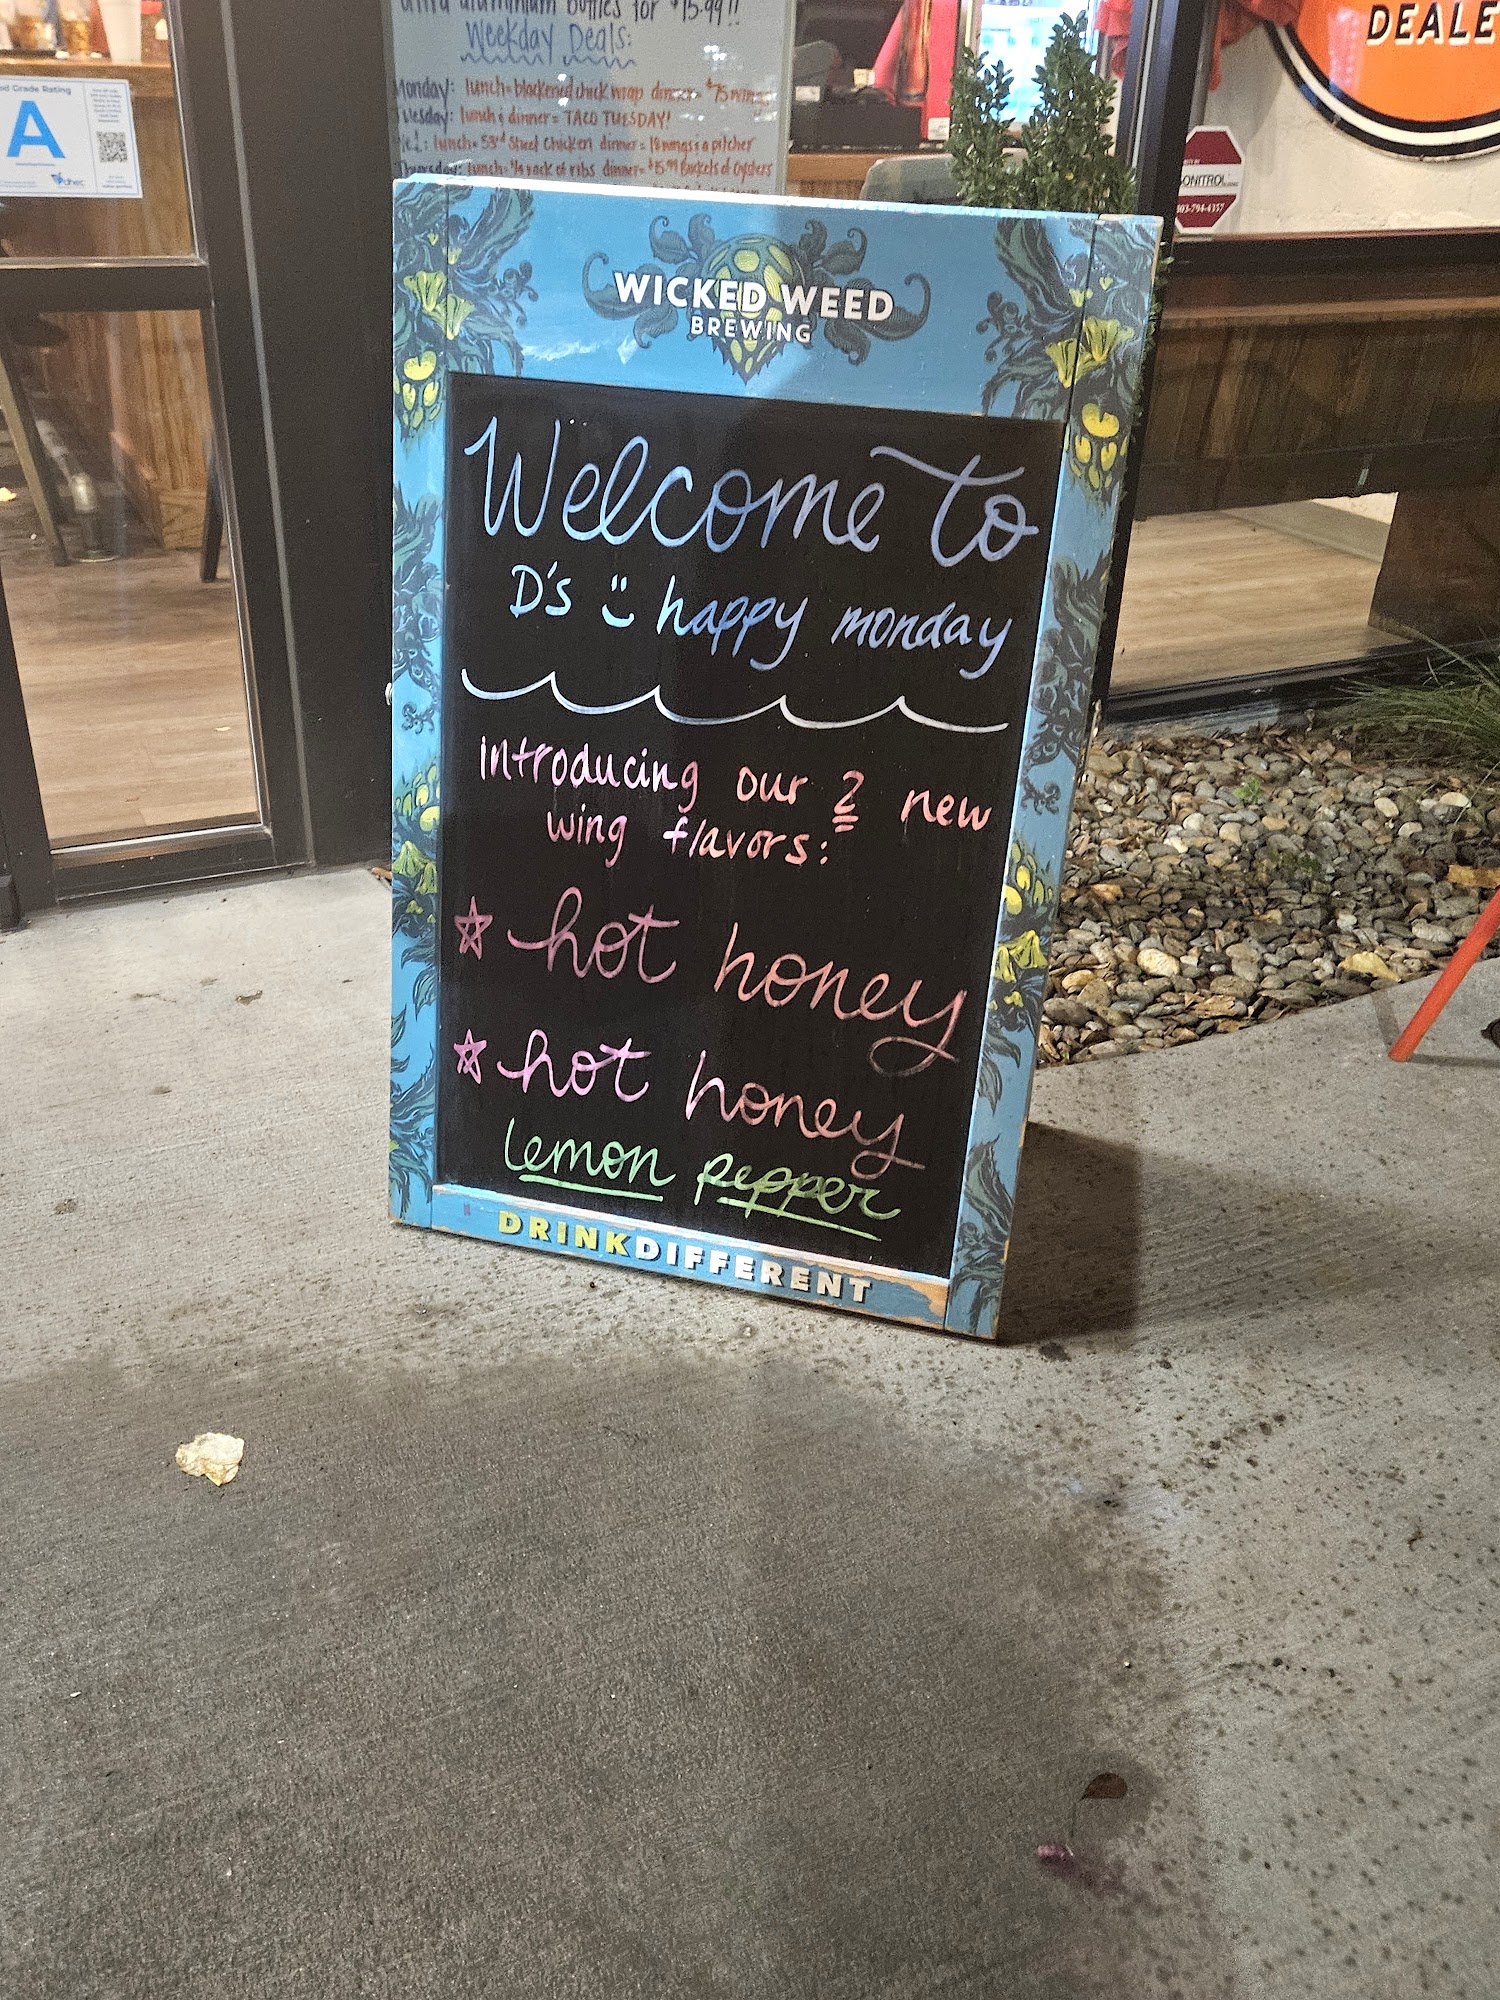 aluminium bottles for $15.99!!
Weekday Deals:
Monday: lunch=blackened chick wrap dinner=
lunch & dinner= TACO TUESDAY!
lunch= 53rd Street chicken dinner= 10 wings & a pitcher
Thursday: lunch= rack of ribs dinner= $15.99 Buckets of Oysters
Grade Rating
A
dhec
DEALE
ONITROL
803-794-4357
WICKED WEED
BREWING
Welcome to
D's happy monday
introducing our 2 new
wing flavors:
hot honey
hot honey
lemon pepper
DRINKDIFFERENT